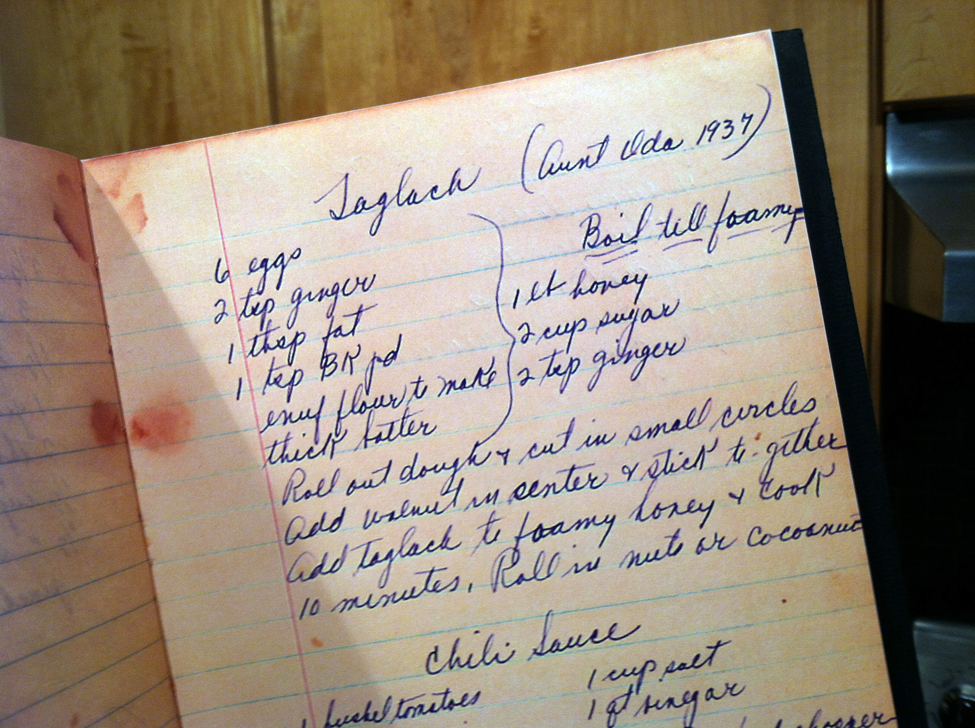 Taglach (Aunt Ida 1937)
6 eggs
2 tsp ginger
1 tbsp fat
1 tsp BK pd
enuf flour to make
thick batter
Boil till foamy
1 lb honey
2 cup sugar
2 tsp ginger
Roll out dough & cut in small circles
Add walnut in senter & stick to-gither
Add taglach to foamy honey & cook
10 minutes. Roll in nuts or cocoanut
Chili Sauce
1 bushel tomatoes
1 cup salt
1 qt vinegar